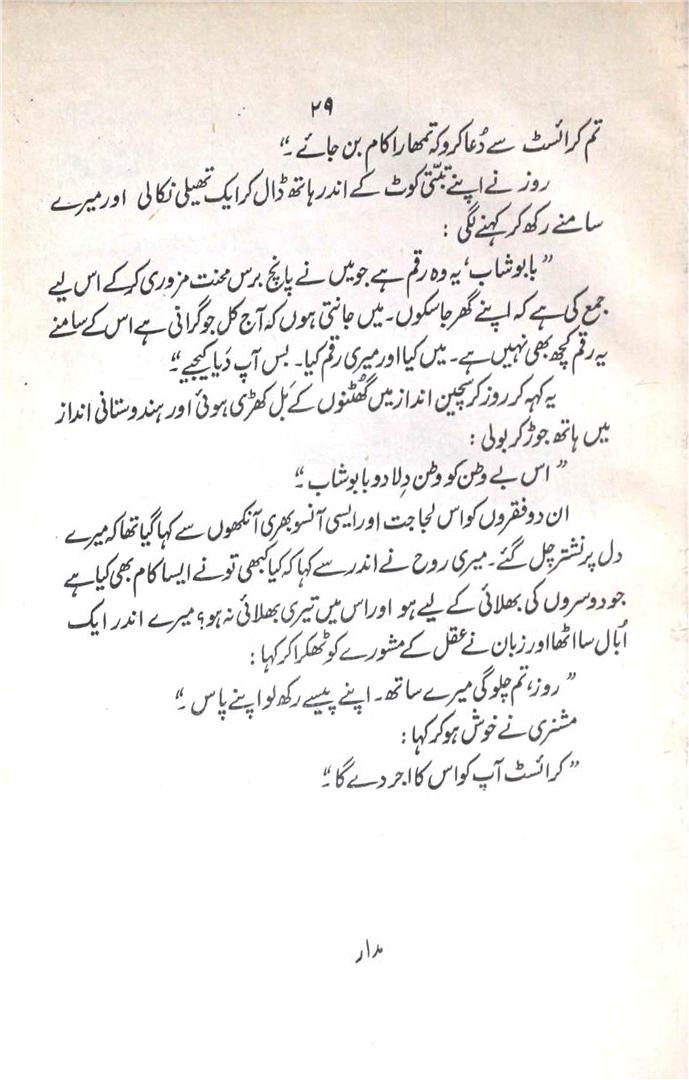 ۲۹
تم کرائسٹ سے دُعا کرو کہ تمھارا کام بن جائے۔“
روز نے اپنے تبتّی کوٹ کے اندر ہاتھ ڈال کر ایک تھیلی نکالی اور میرے
سامنے رکھ کر کہنے لگی :
”بابو شاب، یہ وہ رقم ہے جو میں نے پانچ برس محنت مزوری کرکے اس لیے
جمع کی ہے کہ اپنے گھر جا سکوں۔ میں جانتی ہوں کہ آج کل جو گرانی ہے اس کے سامنے
یہ رقم کچھ بھی نہیں ہے۔ میں کیا اور میری رقم کیا۔ بس آپ دَیا کیجیے“۔
یہ کہہ کر روز کرسچین انداز میں گھُٹنوں کے بَل کھڑی ہوئی اور ہندوستانی انداز
میں ہاتھ جوڑ کر بولی :
”اس بے وطن کو وطن دِلا دو بابو شاب۔“
ان دو فقروں کو اس لجاجت اور ایسی آنسو بھری آنکھوں سے کہا گیا تھا کہ میرے
دل پر نشتر چل گئے۔ میری روح نے اندر سے کہا کہ کیا کبھی تو نے ایسا کام بھی کیا ہے
جو دوسروں کی بھلائی کے لیے ہو اور اس میں تیری بھلائی نہ ہو؟ میرے اندر ایک
اُبال سا اٹھا اور زبان نے عقل کے مشورے کو ٹھکرا کر کہا :
”روز، تم چلو گی میرے ساتھ۔ اپنے پیسے رکھ لو اپنے پاس۔“
مشنری نے خوش ہو کر کہا :
”کرائسٹ آپ کو اس کا اجر دے گا۔“
مدار